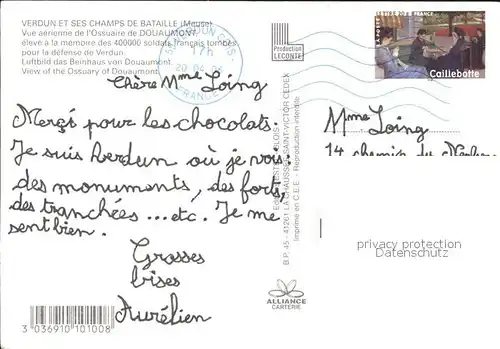 VERDUN ET SES CHAMPS DE BATAILLE (Meuse)
Vue aérienne de l'Ossuaire de DOUAUMONT,
élevé à la mémoire des 400000 soldats français tombés
pour la défense de Verdun.
Luftbild das Beinhaus von Douaumont.
View of the Ossuary of Douaumont.
17h
FRANCE
Production
LECONTE
FRANCE
Caillebotte
Chère Mme Loing
Merçi pour les chocolats.
Je suis verdun où je vois:
des monuments, des forts,
des tranchées ...etc. Je me
sent bien.
Grosses
bises
Aurélien
Mme Loing
14 chemin du
B.P. 45 - 41261 LA CHAUSSÉE-SAINT-VICTOR CEDEX
Imprimé en C.E.E. - Reproduction interdite
privacy protection
Datenschutz
ALLIANCE
CARTERIE
3 036910 101008